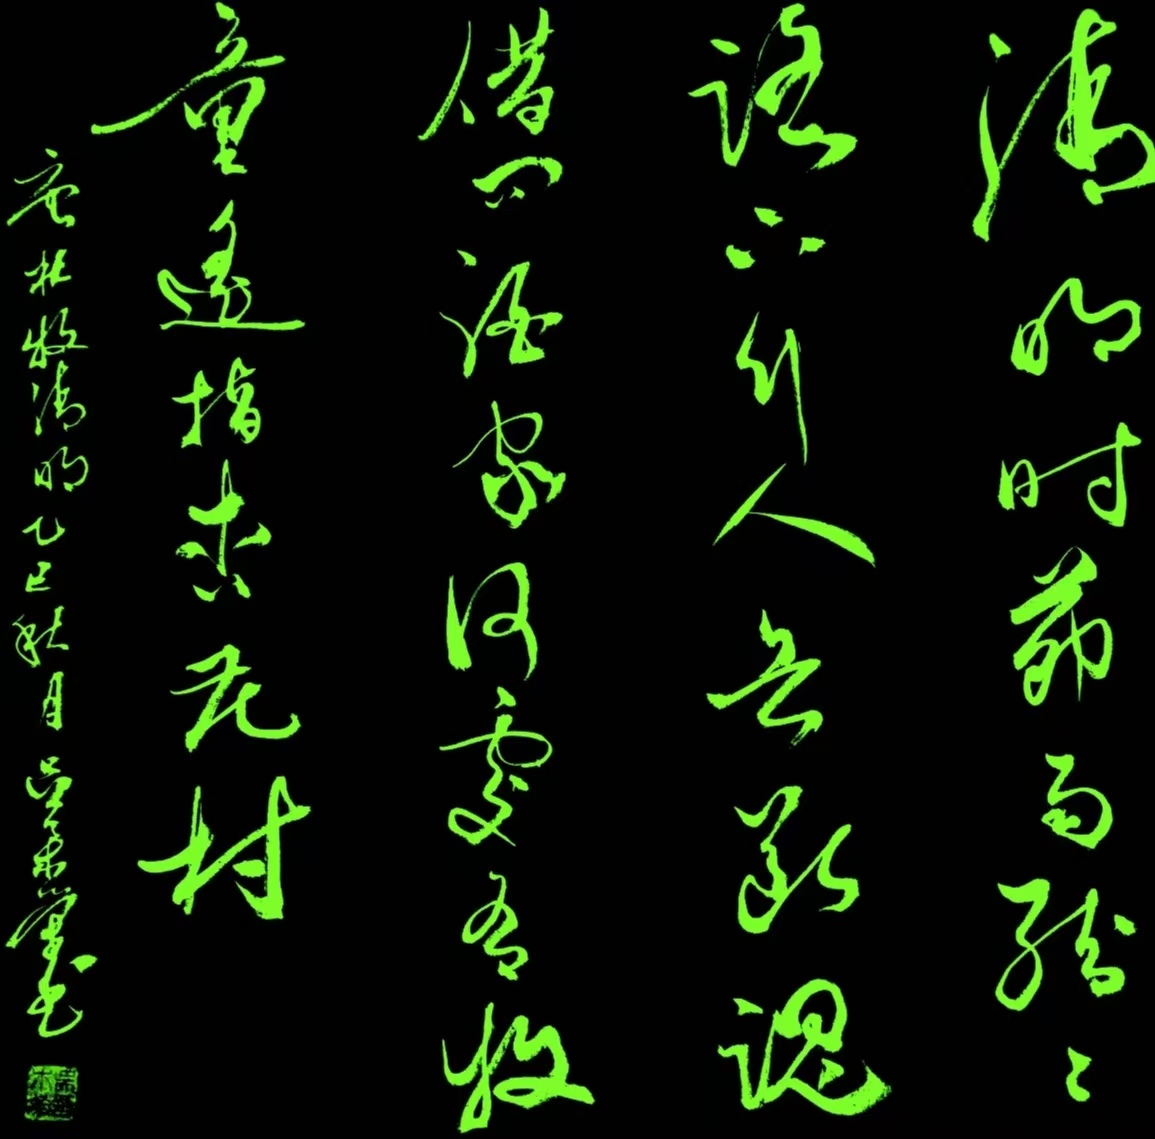 清明时节雨纷々
路上行人欲断魂
借问酒家何处有牧
童遥指杏花村
唐杜牧清明乙巳秋月吴书